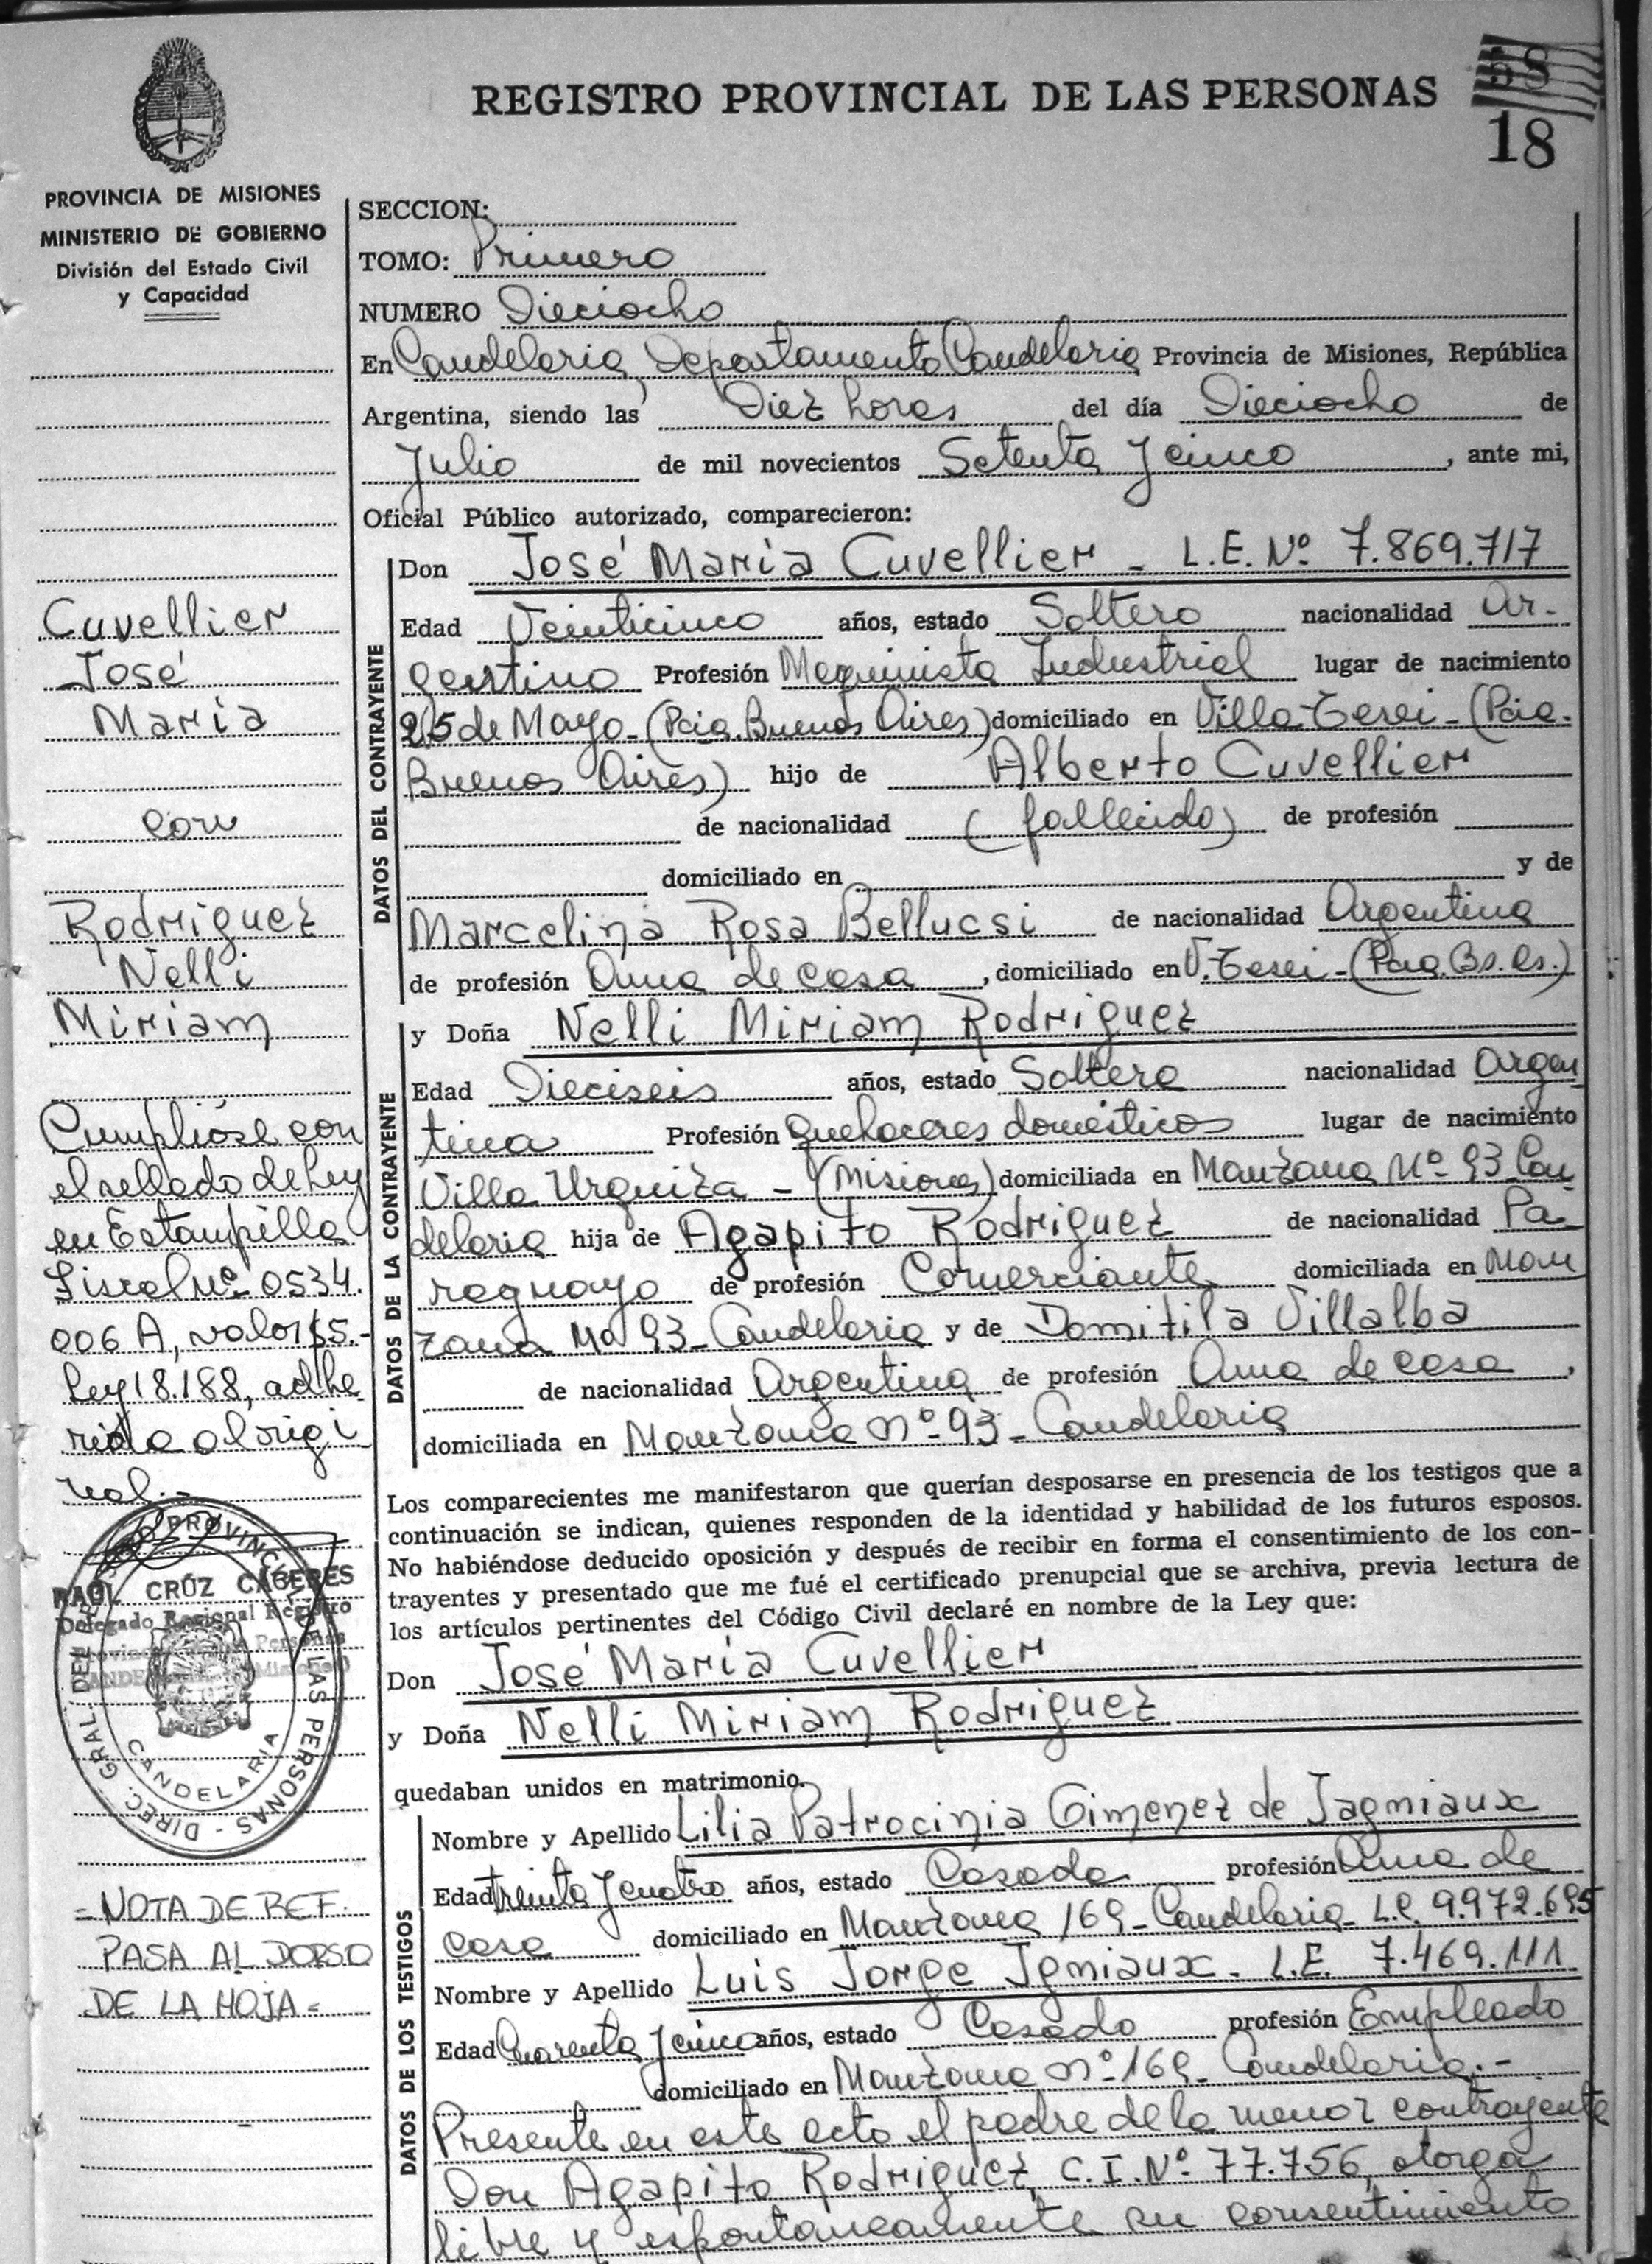 REGISTRO PROVINCIAL DE LAS PERSONAS
58
18
PROVINCIA DE MISIONES
MINISTERIO DE GOBIERNO
División del Estado Civil
y Capacidad
SECCION:
TOMO: Primero
NUMERO Dieciocho
En Candelaria Departamento Candelaria Provincia de Misiones, República
Argentina, siendo las Diez horas del día Dieciocho de
Julio de mil novecientos Setenta y cinco, ante mi,
Oficial Público autorizado, comparecieron:
DATOS DEL CONTRAYENTE
Don José María Cuvellier - L.E. Nº 7.869.717
Edad Veinticinco años, estado Soltero nacionalidad Ar-
gentino Profesión Maquinista Industrial lugar de nacimiento
25 de Mayo - (Pcia. Buenos Aires) domiciliado en Villa Tesei - (Pcia.
Buenos Aires) hijo de Alberto Cuvellier
de nacionalidad (fallecido) de profesión
domiciliado en y de
Marcelina Rosa Bellucsi de nacionalidad Argentina
de profesión Ama de casa, domiciliado en V. Tesei - (Pcia. Bs. As.)
DATOS DE LA CONTRAYENTE
y Doña Nelli Miriam Rodriguez
Edad Dieciseis años, estado Soltera nacionalidad Argen
tina Profesión Quehaceres domésticos lugar de nacimiento
Villa Urquiza - (Misiones) domiciliada en Manzana Nº 93 Can
delaria hija de Agapito Rodriguez de nacionalidad Pa-
raguayo de profesión Comerciante domiciliada en Man
zana Nº 93 - Candelaria y de Domitila Villalba
de nacionalidad Argentina de profesión Ama de casa,
domiciliada en Manzana nº 93 - Candelaria
Los comparecientes me manifestaron que querían desposarse en presencia de los testigos que a
continuación se indican, quienes responden de la identidad y habilidad de los futuros esposos.
No habiéndose deducido oposición y después de recibir en forma el consentimiento de los con-
trayentes y presentado que me fué el certificado prenupcial que se archiva, previa lectura de
los artículos pertinentes del Código Civil declaré en nombre de la Ley que:
Don José María Cuvellier
y Doña Nelli Miriam Rodriguez
quedaban unidos en matrimonio.
DATOS DE LOS TESTIGOS
Nombre y Apellido Lilia Patrocinia Gimenez de Jagniaux
Edad treinta y cuatro años, estado Casada profesión Ama de
casa domiciliado en Manzana 169 - Candelaria - L.C. 9.972.695
Nombre y Apellido Luis Jorge Jgniaux - L.E. 7.469.111
Edad Cuarenta y cinco años, estado Casado profesión Empleado
domiciliado en Manzana nº 169 - Candelaria.-
Presente en este acto el padre de la menor contrayente
Don Agapito Rodriguez, C.I. Nº 77.756, otorga
libre y espontaneamente su consentimiento
Cuvellier
José
María
con
Rodriguez
Nelli
Miriam
Cumplióse con
el sellado de Ley
en Estampilla
Fiscal Nº 0534.
006 A, valor $5.-
Ley 18.188, adhe
rida al origi
nal.-
RAUL CRUZ CACERES
Delegado Regional Registro
Provincial Personas
(Misiones)
DIREC. GRAL. DEL REG. PROVINCIAL DE LAS PERSONAS -
CANDELARIA
= NOTA DE REF.
PASA AL DORSO
DE LA HOJA =